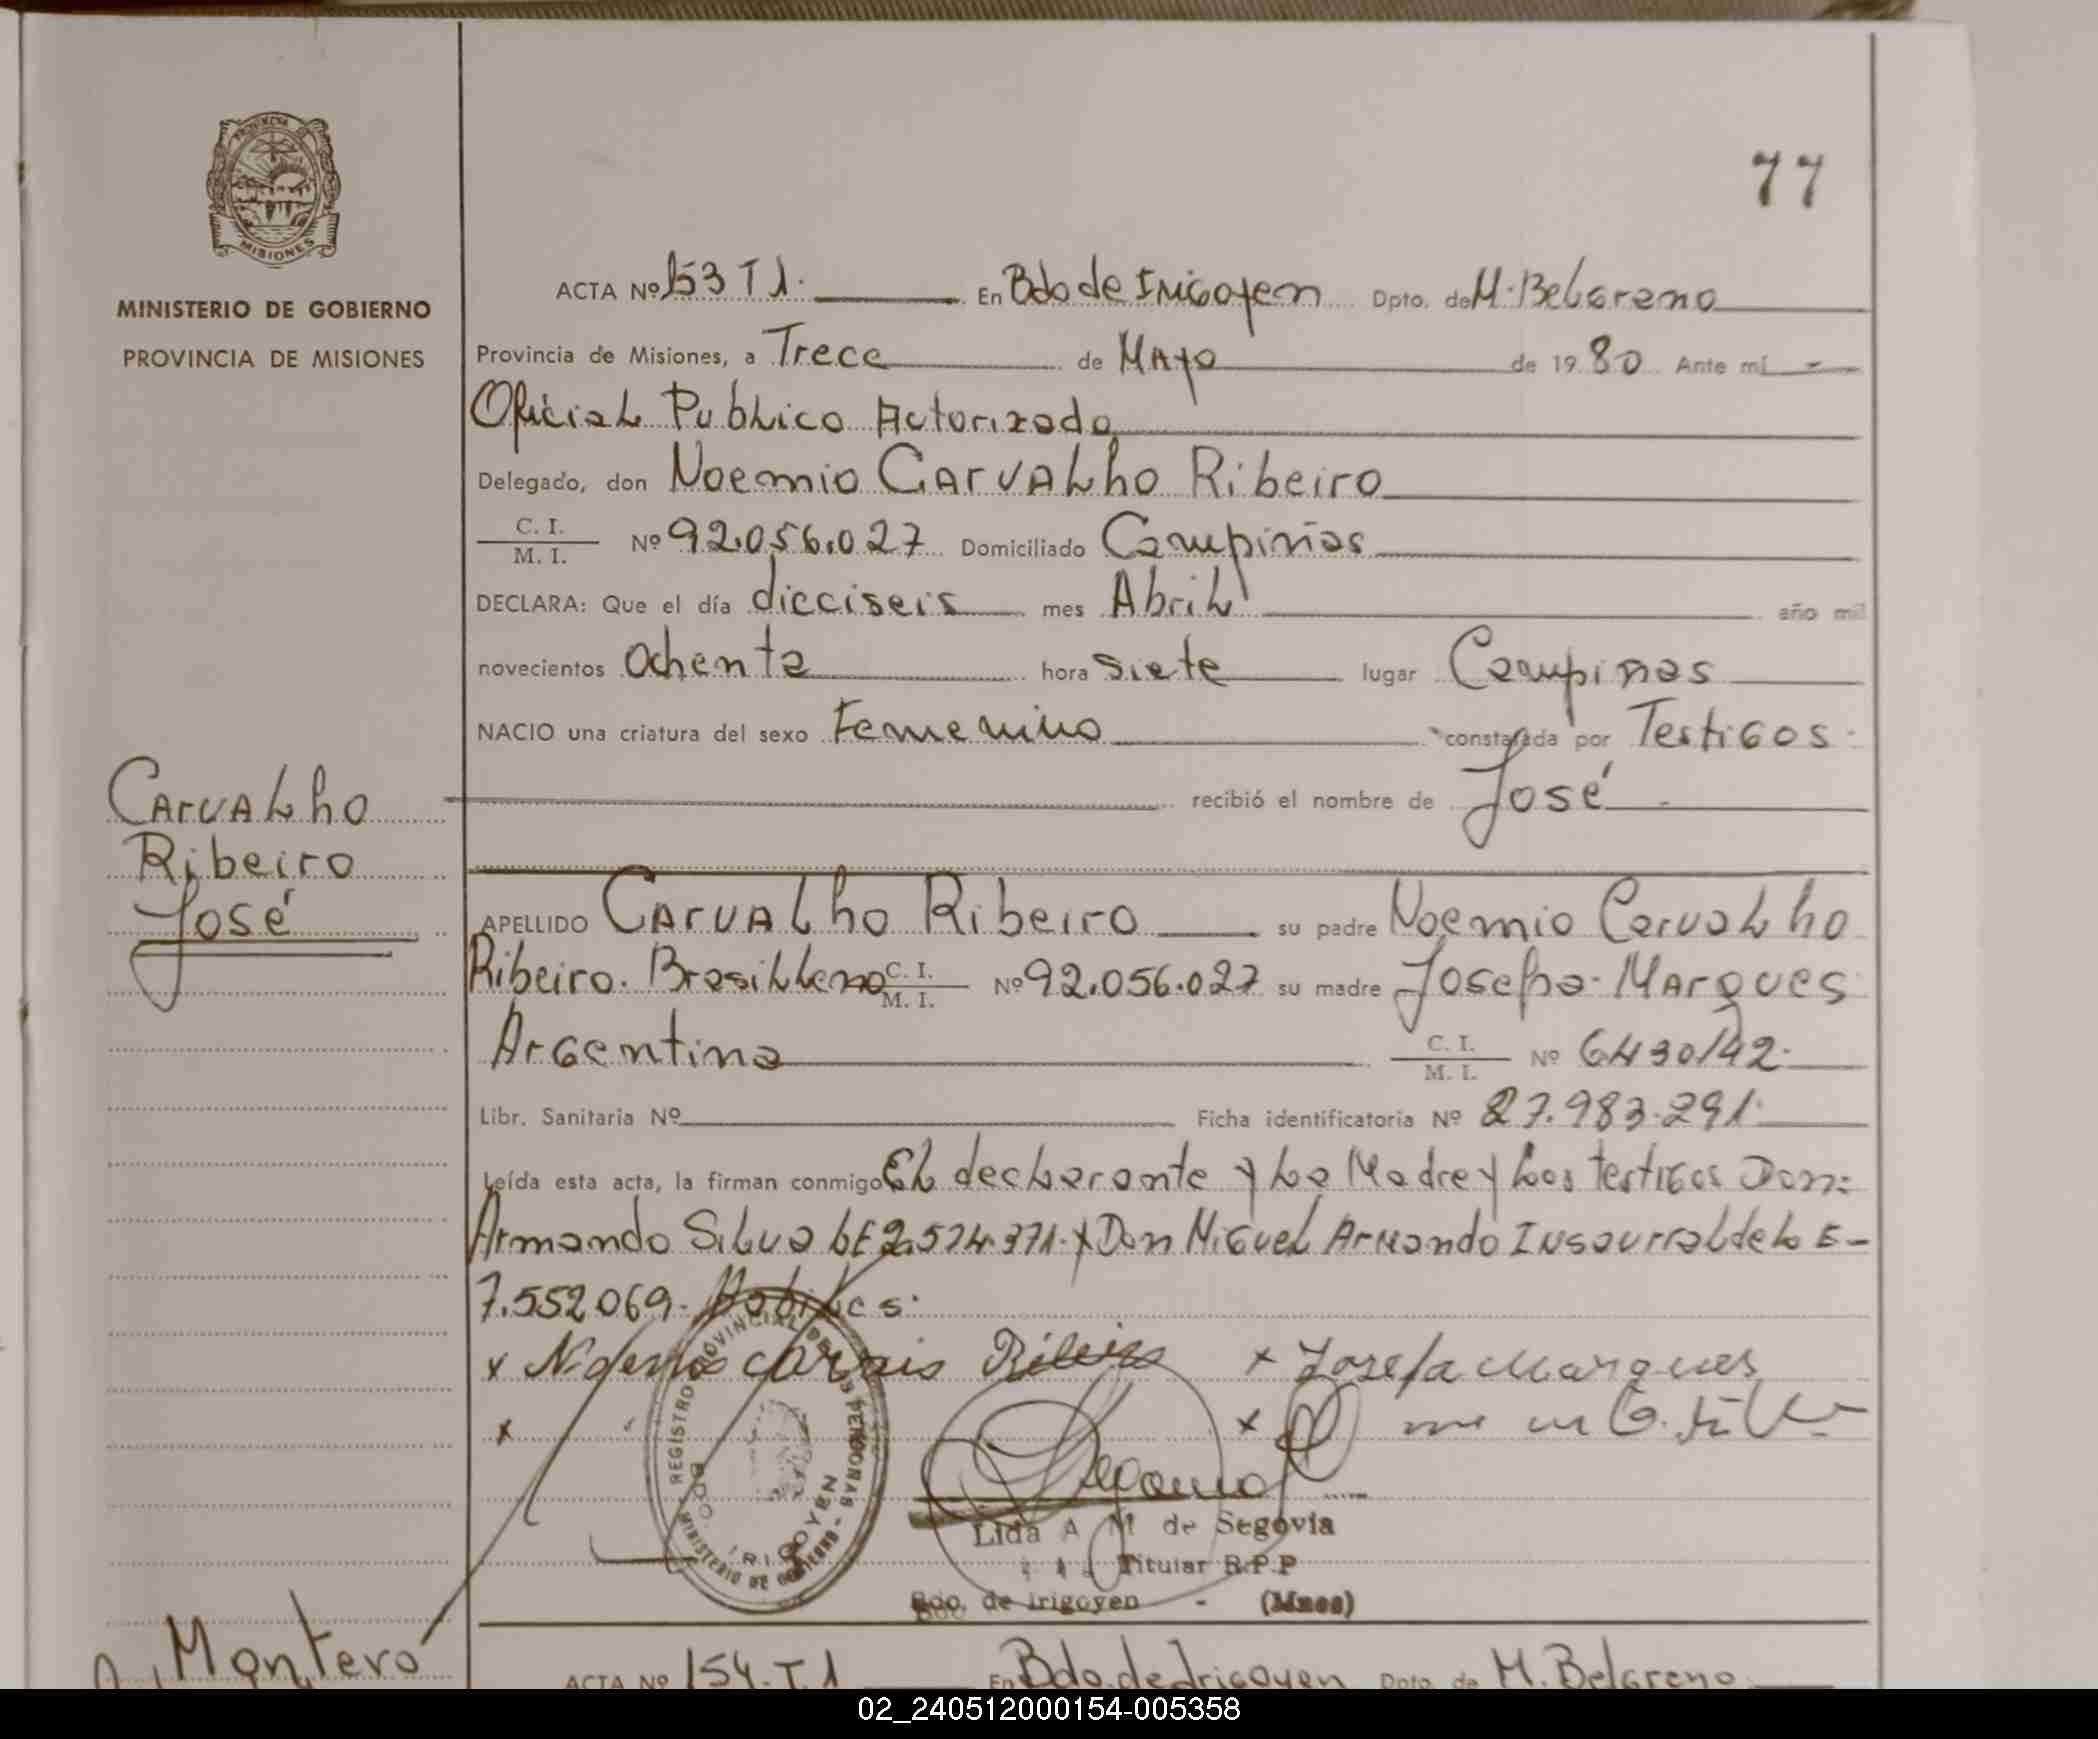 77
PROVINCIA
MISIONES
MINISTERIO DE GOBIERNO
PROVINCIA DE MISIONES
ACTA Nº 153 T1. En Bdo de Irigoyen Dpto. de M. Belgrano
Provincia de Misiones, a Trece de Mayo de 1980 Ante mí -
Oficial Publico Autorizado
Delegado, don Noemio Carvalho Ribeiro
C. I.
M. I. Nº 92.056.027 Domiciliado Campiñas
DECLARA: Que el día dieciseis mes Abril año mil
novecientos Ochenta hora siete lugar Campinas
NACIO una criatura del sexo Femenino constatada por Testigos.
recibió el nombre de José
Carvalho
Ribeiro
José
APELLIDO Carvalho Ribeiro su padre Noemio Carvalho
Ribeiro. Brasilleno C. I. M. I. Nº 92.056.027 su madre Josefa Marques
Argentina C. I. M. I. Nº 6430142.
Libr. Sanitaria Nº Ficha identificatoria Nº 27.983.291.
Leída esta acta, la firman conmigo El declarante y la Madre y los testigos Don:
Armando Silva LE 2.574.371. y Don Miguel Armando Insaurralde L E-
7.552.069. Habiles.
x Ribeiro x Josefa Marques
x x
REGISTRO PROVINCIAL DE LAS PERSONAS
BDO. IRIGOYEN
MINISTERIO DE GOBIERNO
Lida A M de Segovia
Titular R.P.P
Bdo. de Irigoyen - (Mnes)
Montero
ACTA Nº 154. T.1 En Bdo. de Irigoyen Dpto. de M. Belgrano
02_240512000154-005358